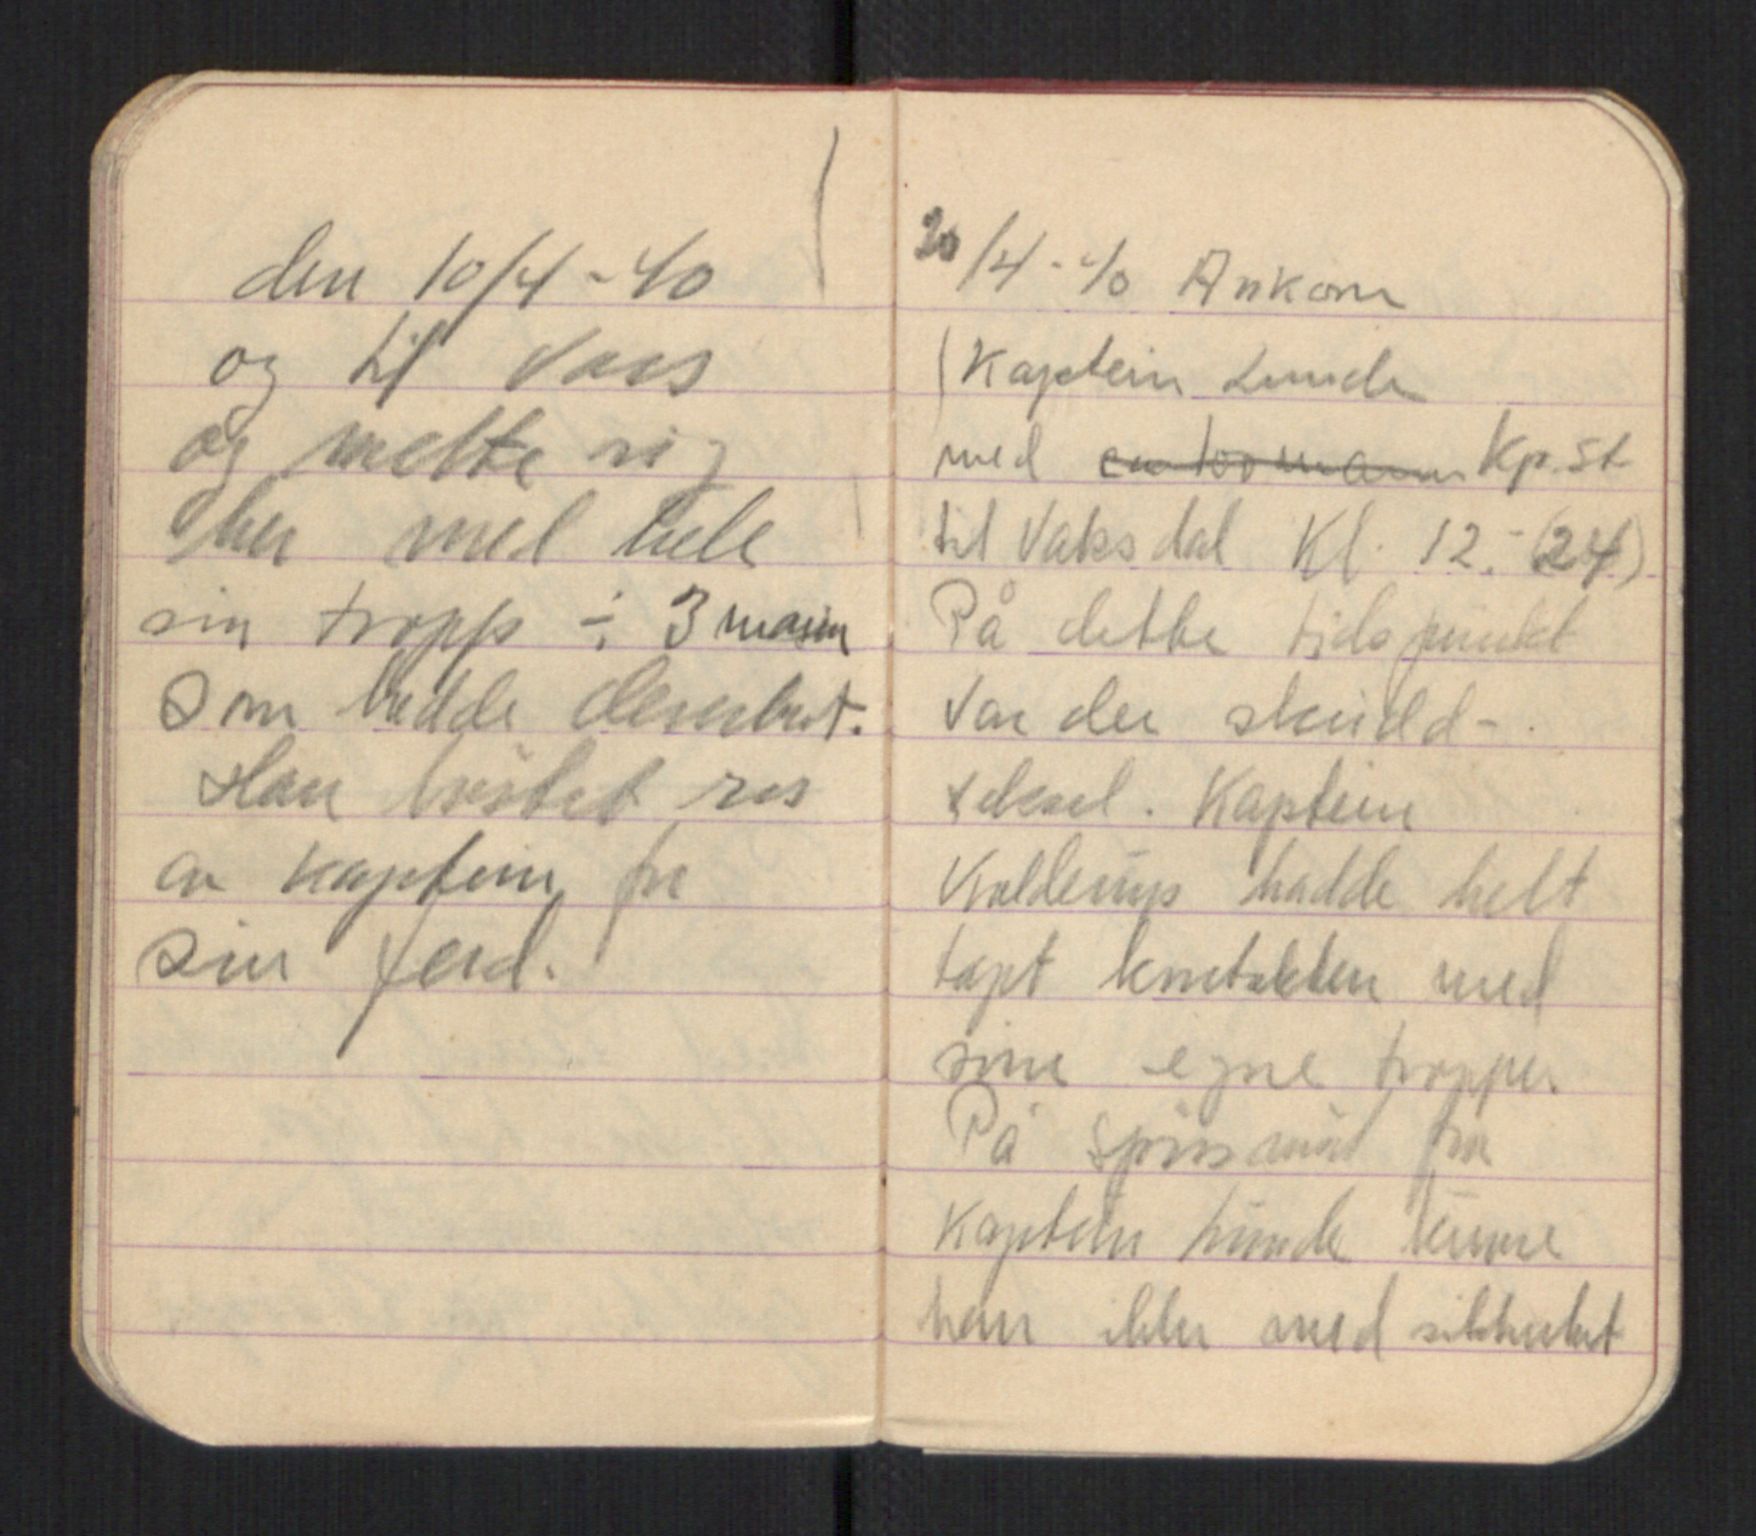 den 10/4-40
og til Voss
og melte sig
her med hele
sin tropp ÷ 3 mann
som hadde desertert.
Han høstet ros
av kaptein for
sin ferd.
20/4-40 Ankom
(Kaptein Lunde
med en 100 mann Kp.St
til Vaksdal Kl. 12.- (24)
På dette tidspunkt
var der skudd-
veksel. Kaptein
Kolderup hadde helt
tapt kontakten med
sine egne tropper.
På spørsmål fra
Kaptein Lunde kunne
han ikke med sikkerhet